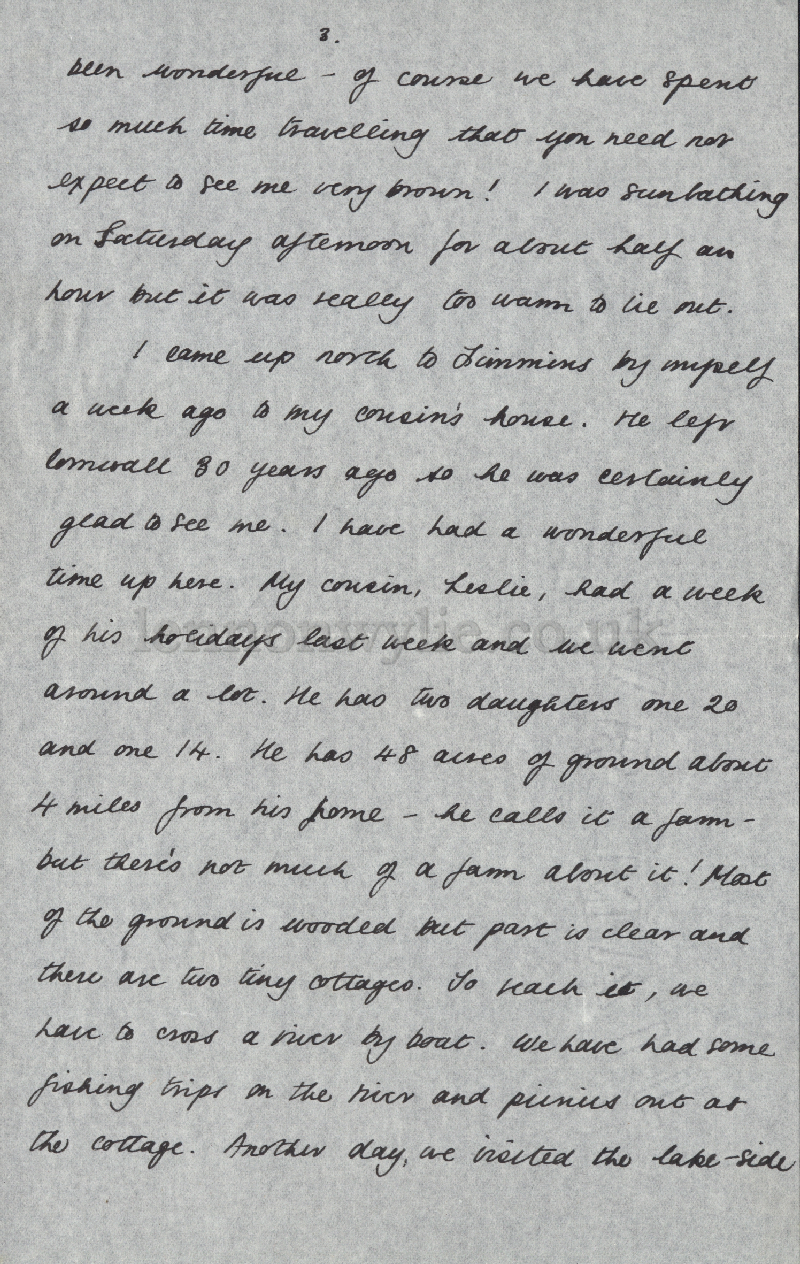 3.
been wonderful - of course we have spent
so much time travelling that you need not
expect to see me very brown! I was sunbathing
on Saturday afternoon for about half an
hour but it was really too warm to lie out.
I came up north to Timmins by myself
a week ago to my cousin's house. He left
Cornwall 30 years ago so he was certainly
glad to see me. I have had a wonderful
time up here. My cousin, Leslie, had a week
of his holidays last week and we went
around a lot. He has two daughters one 20
and one 14. He has 48 acres of ground about
4 miles from his home - he calls it a farm -
but there's not much of a farm about it! Most
of the ground is wooded but part is clear and
there are two tiny cottages. To reach it, we
have to cross a river by boat. We have had some
fishing trips on the river and picnics out at
the cottage. Another day, we visited the lake-side
lennonwylie.co.uk